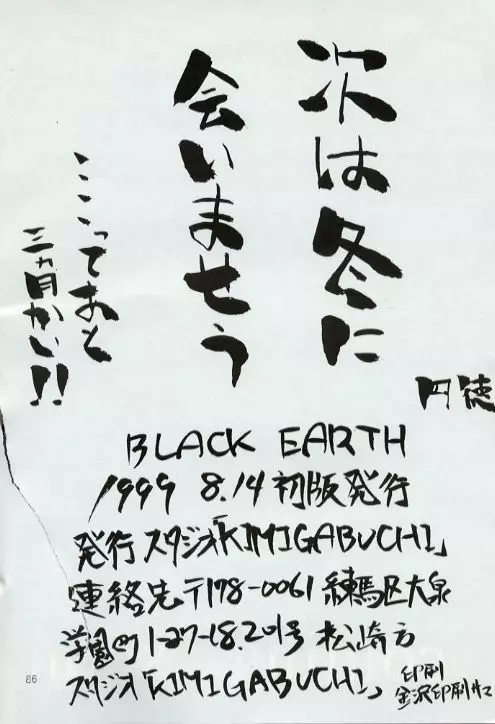 次は冬に
会いませう
ここってあと
三ヵ月かい!!
円徒
BLACK EARTH
1999 8.14 初版発行
発行 スタジオ「KIMIGABUCHI」
連絡先 〒178-0061 練馬区大泉
学園町1-27-18.201号 松崎方
スタジオ「KIMIGABUCHI」
印刷
金沢印刷サマ
86